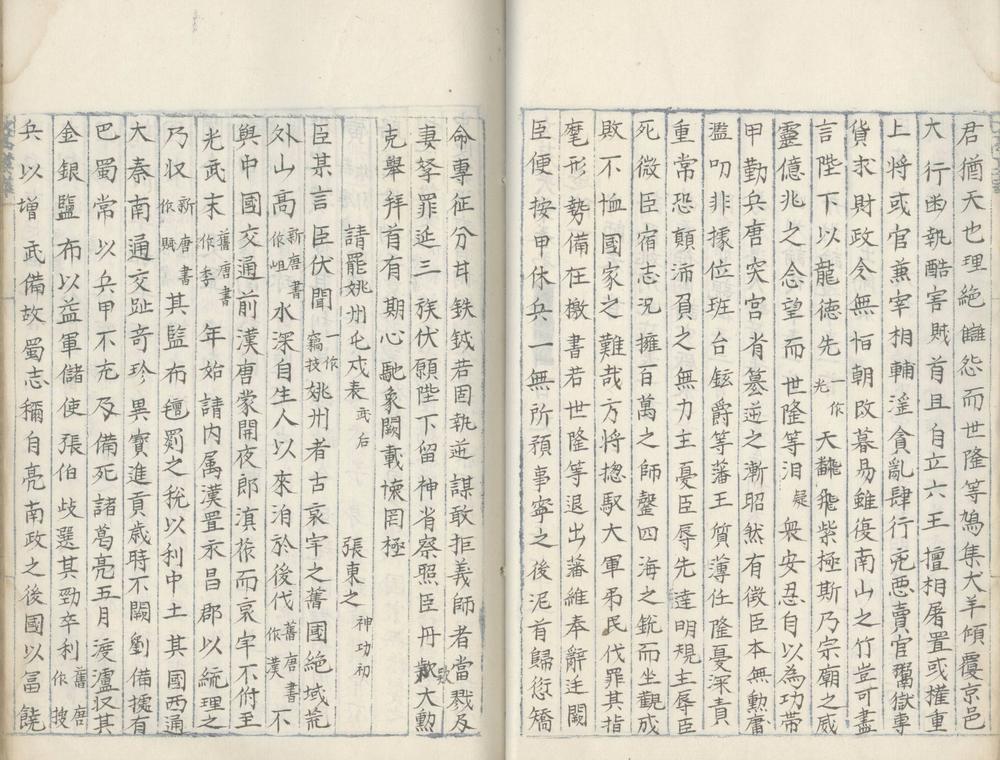 君猶天也理絶讎怨而世隆等鳩集犬羊傾覆京邑
大行凾執酷害賊首且自立六王擅相屠置或㩲重
上將或官兼宰相輔滛貪亂肆行兇悪賣官鬻獄專
貨求財政令無恒朝改暮易雖復南山之竹豈可盡
言陛下以龍徳先一作光天龍飛紫極斯乃宗廟之威
靈億兆之念望而世隆等泪疑衆安忍自以為功帶
甲勤兵唐突宫省簒逆之漸昭然有徴臣本無勲庸
濫叨非據位班台鉉爵等藩王質薄任隆憂深責
重常恐顛沛負之無力主憂臣辱先達明規主辱臣
死微臣宿志况擁百萬之師罄四海之鋭而坐觀成
敗不恤國家之難哉方將揔馭大軍弔民伐罪其指
麾形勢備在檄書若世隆等退出藩維奉辭廷闕
臣便按甲休兵一無所預事寧之後泥首歸愆矯
命專征分甘鉄鉞若固執逆謀敢拒義師者當戮及
妻孥罪延三族伏願陛下留神省察照臣丹歎款大勲
克舉拜首有期心馳象闕載懐罔極
請罷姚州屯戍表武后 張東之神功初
臣某言臣伏聞一作竊按姚州者古哀牢之舊國絶域荒
外山高新唐書作岨水深自生人以來洎於後代舊唐書作漢不
與中國交通前漢唐蒙開夜郎滇莋而哀牢不附至
光武末舊唐書作季年始請内属漢置永昌郡以統理之
乃収新唐書作賦其監布氊罽之税以利中土其國西通
大秦南通交趾竒珍異寳進貢歳時不闕劉備據有
巴蜀常以兵甲不充及備死諸葛亮五月渡瀘収其
金銀鹽布以益軍儲使張伯歧選其勁卒利舊唐作搜
兵以增武備故蜀志稱自亮南政之後國以冨饒